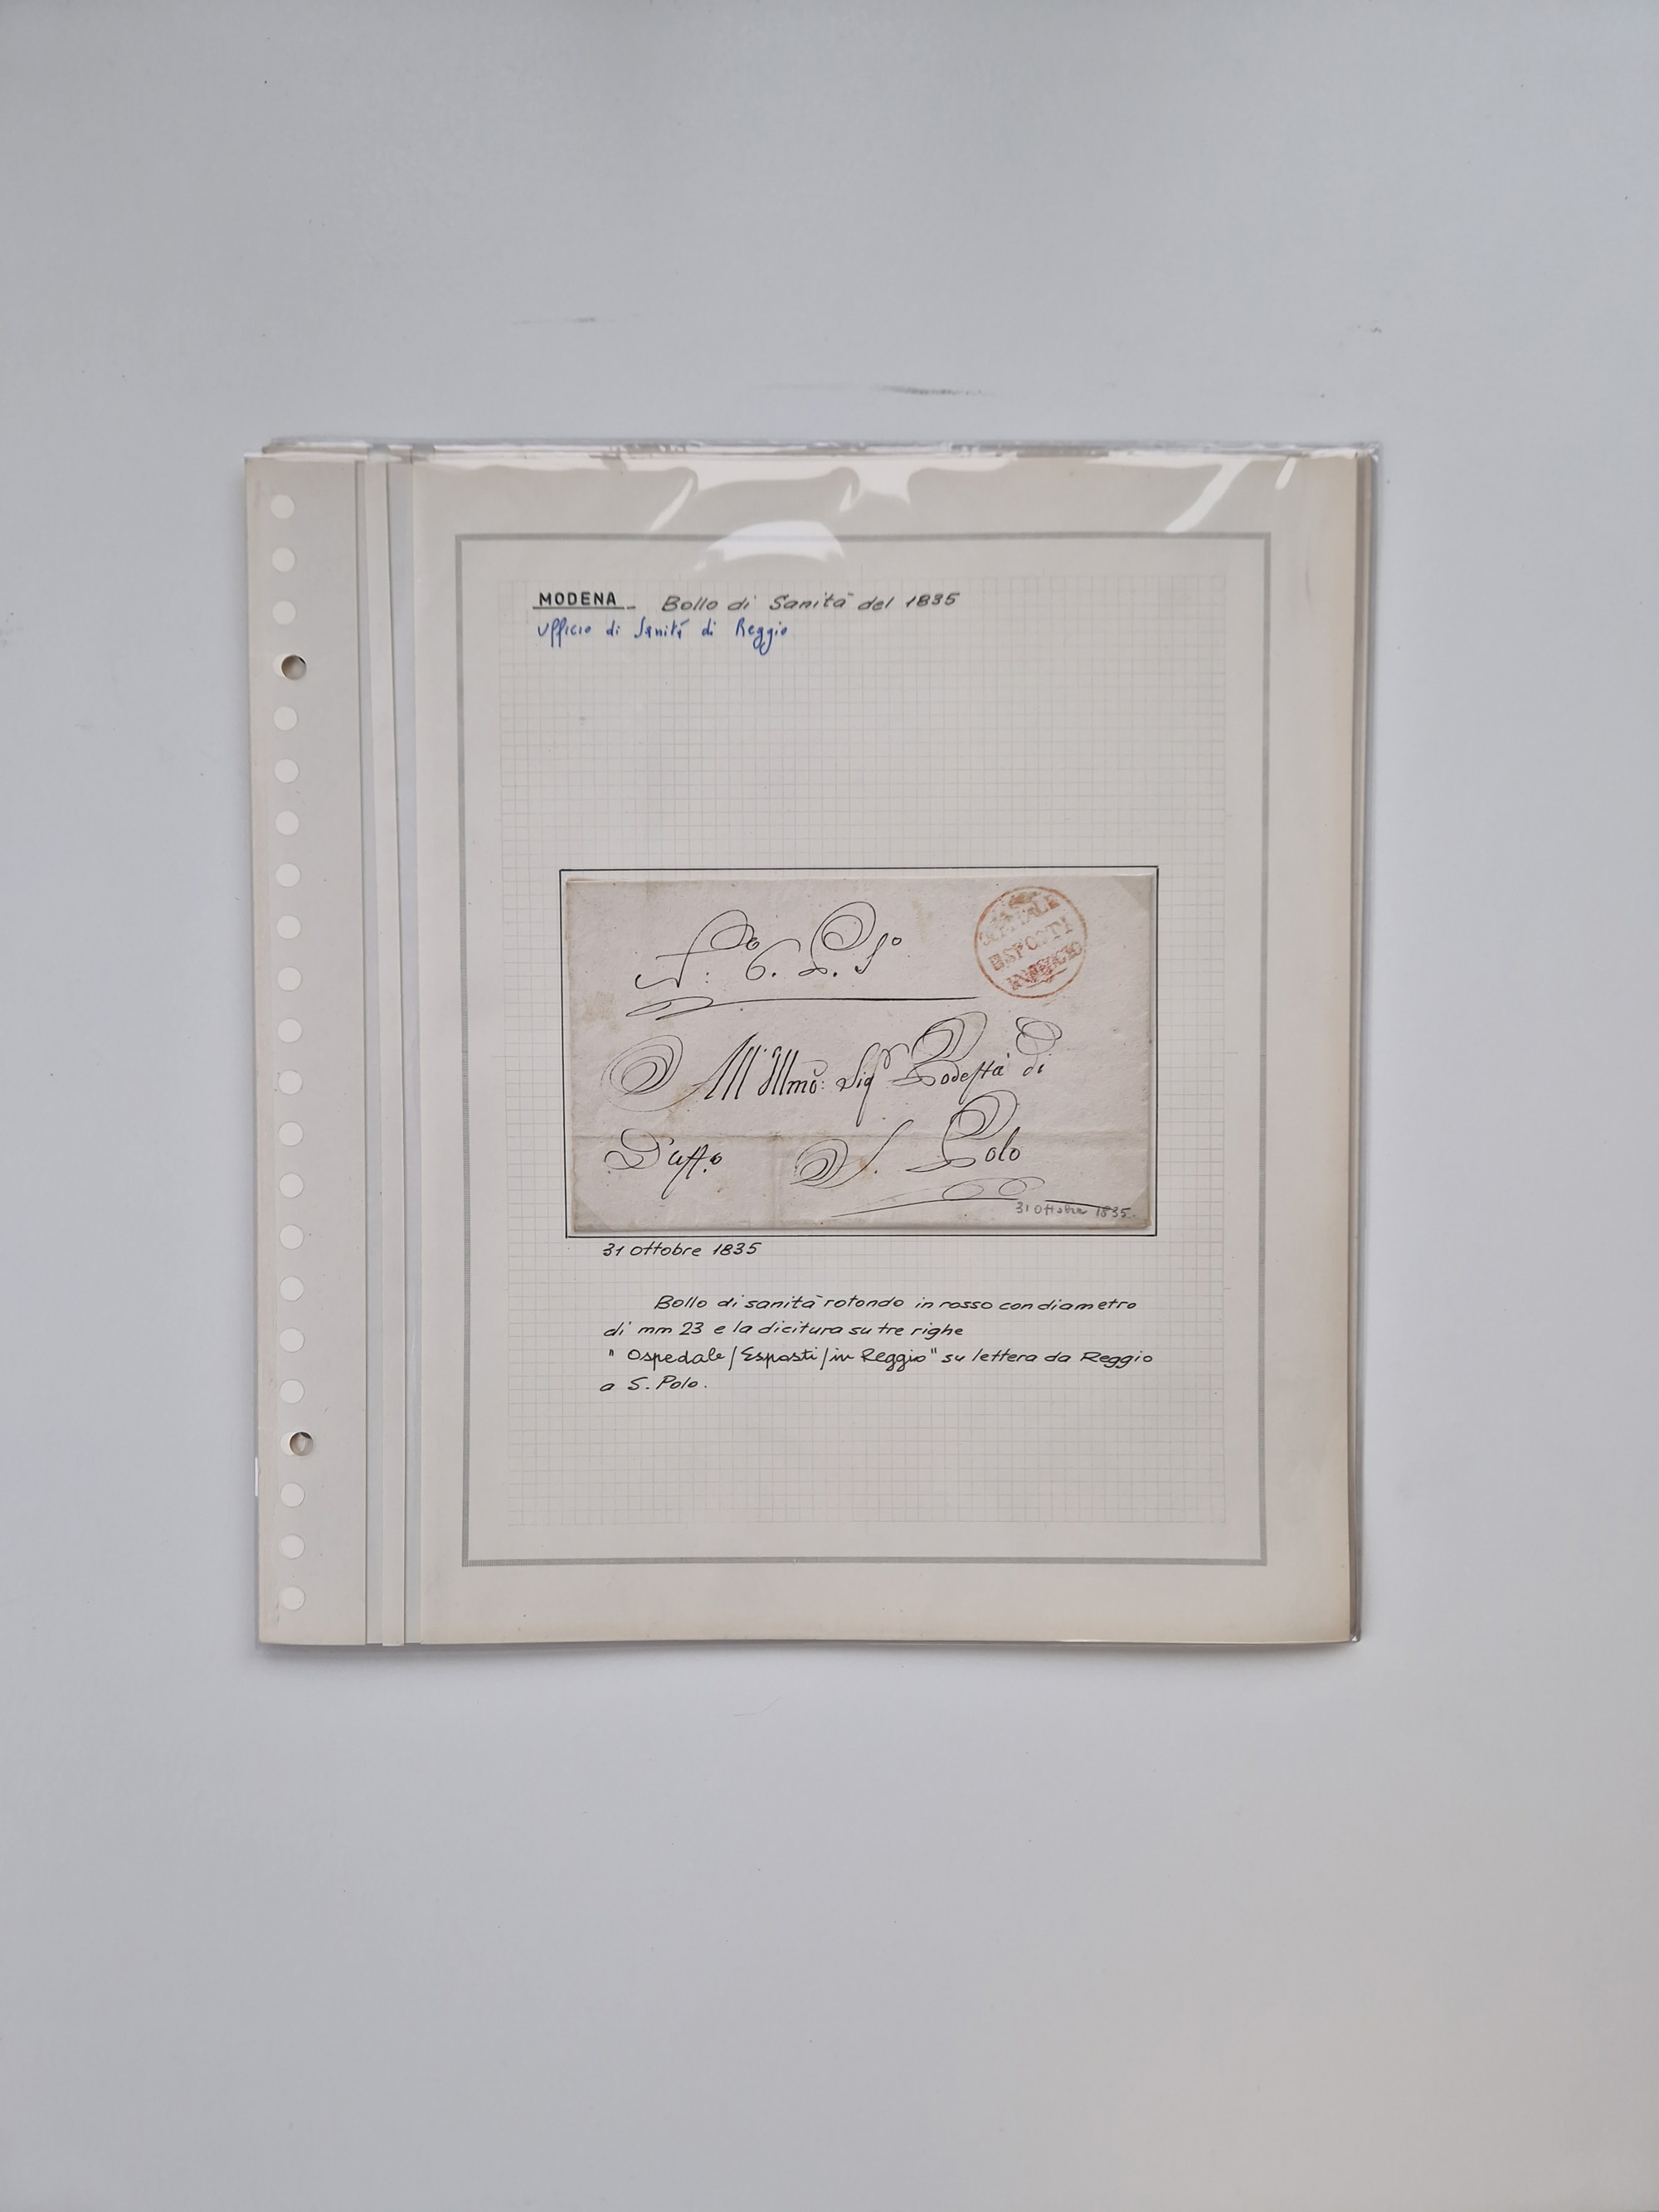 MODENA - Bollo di Sanità del 1835
Ufficio di Sanità di Reggio
ESPOSTI
All'Illmo: Sigr Podestà di
S. Polo
31 Ottobre 1835.
31 ottobre 1835
Bollo di sanità rotondo in rosso con diametro
di mm 23 e la dicitura su tre righe
" Ospedale / Esposti / in Reggio" su lettera da Reggio
a S. Polo.